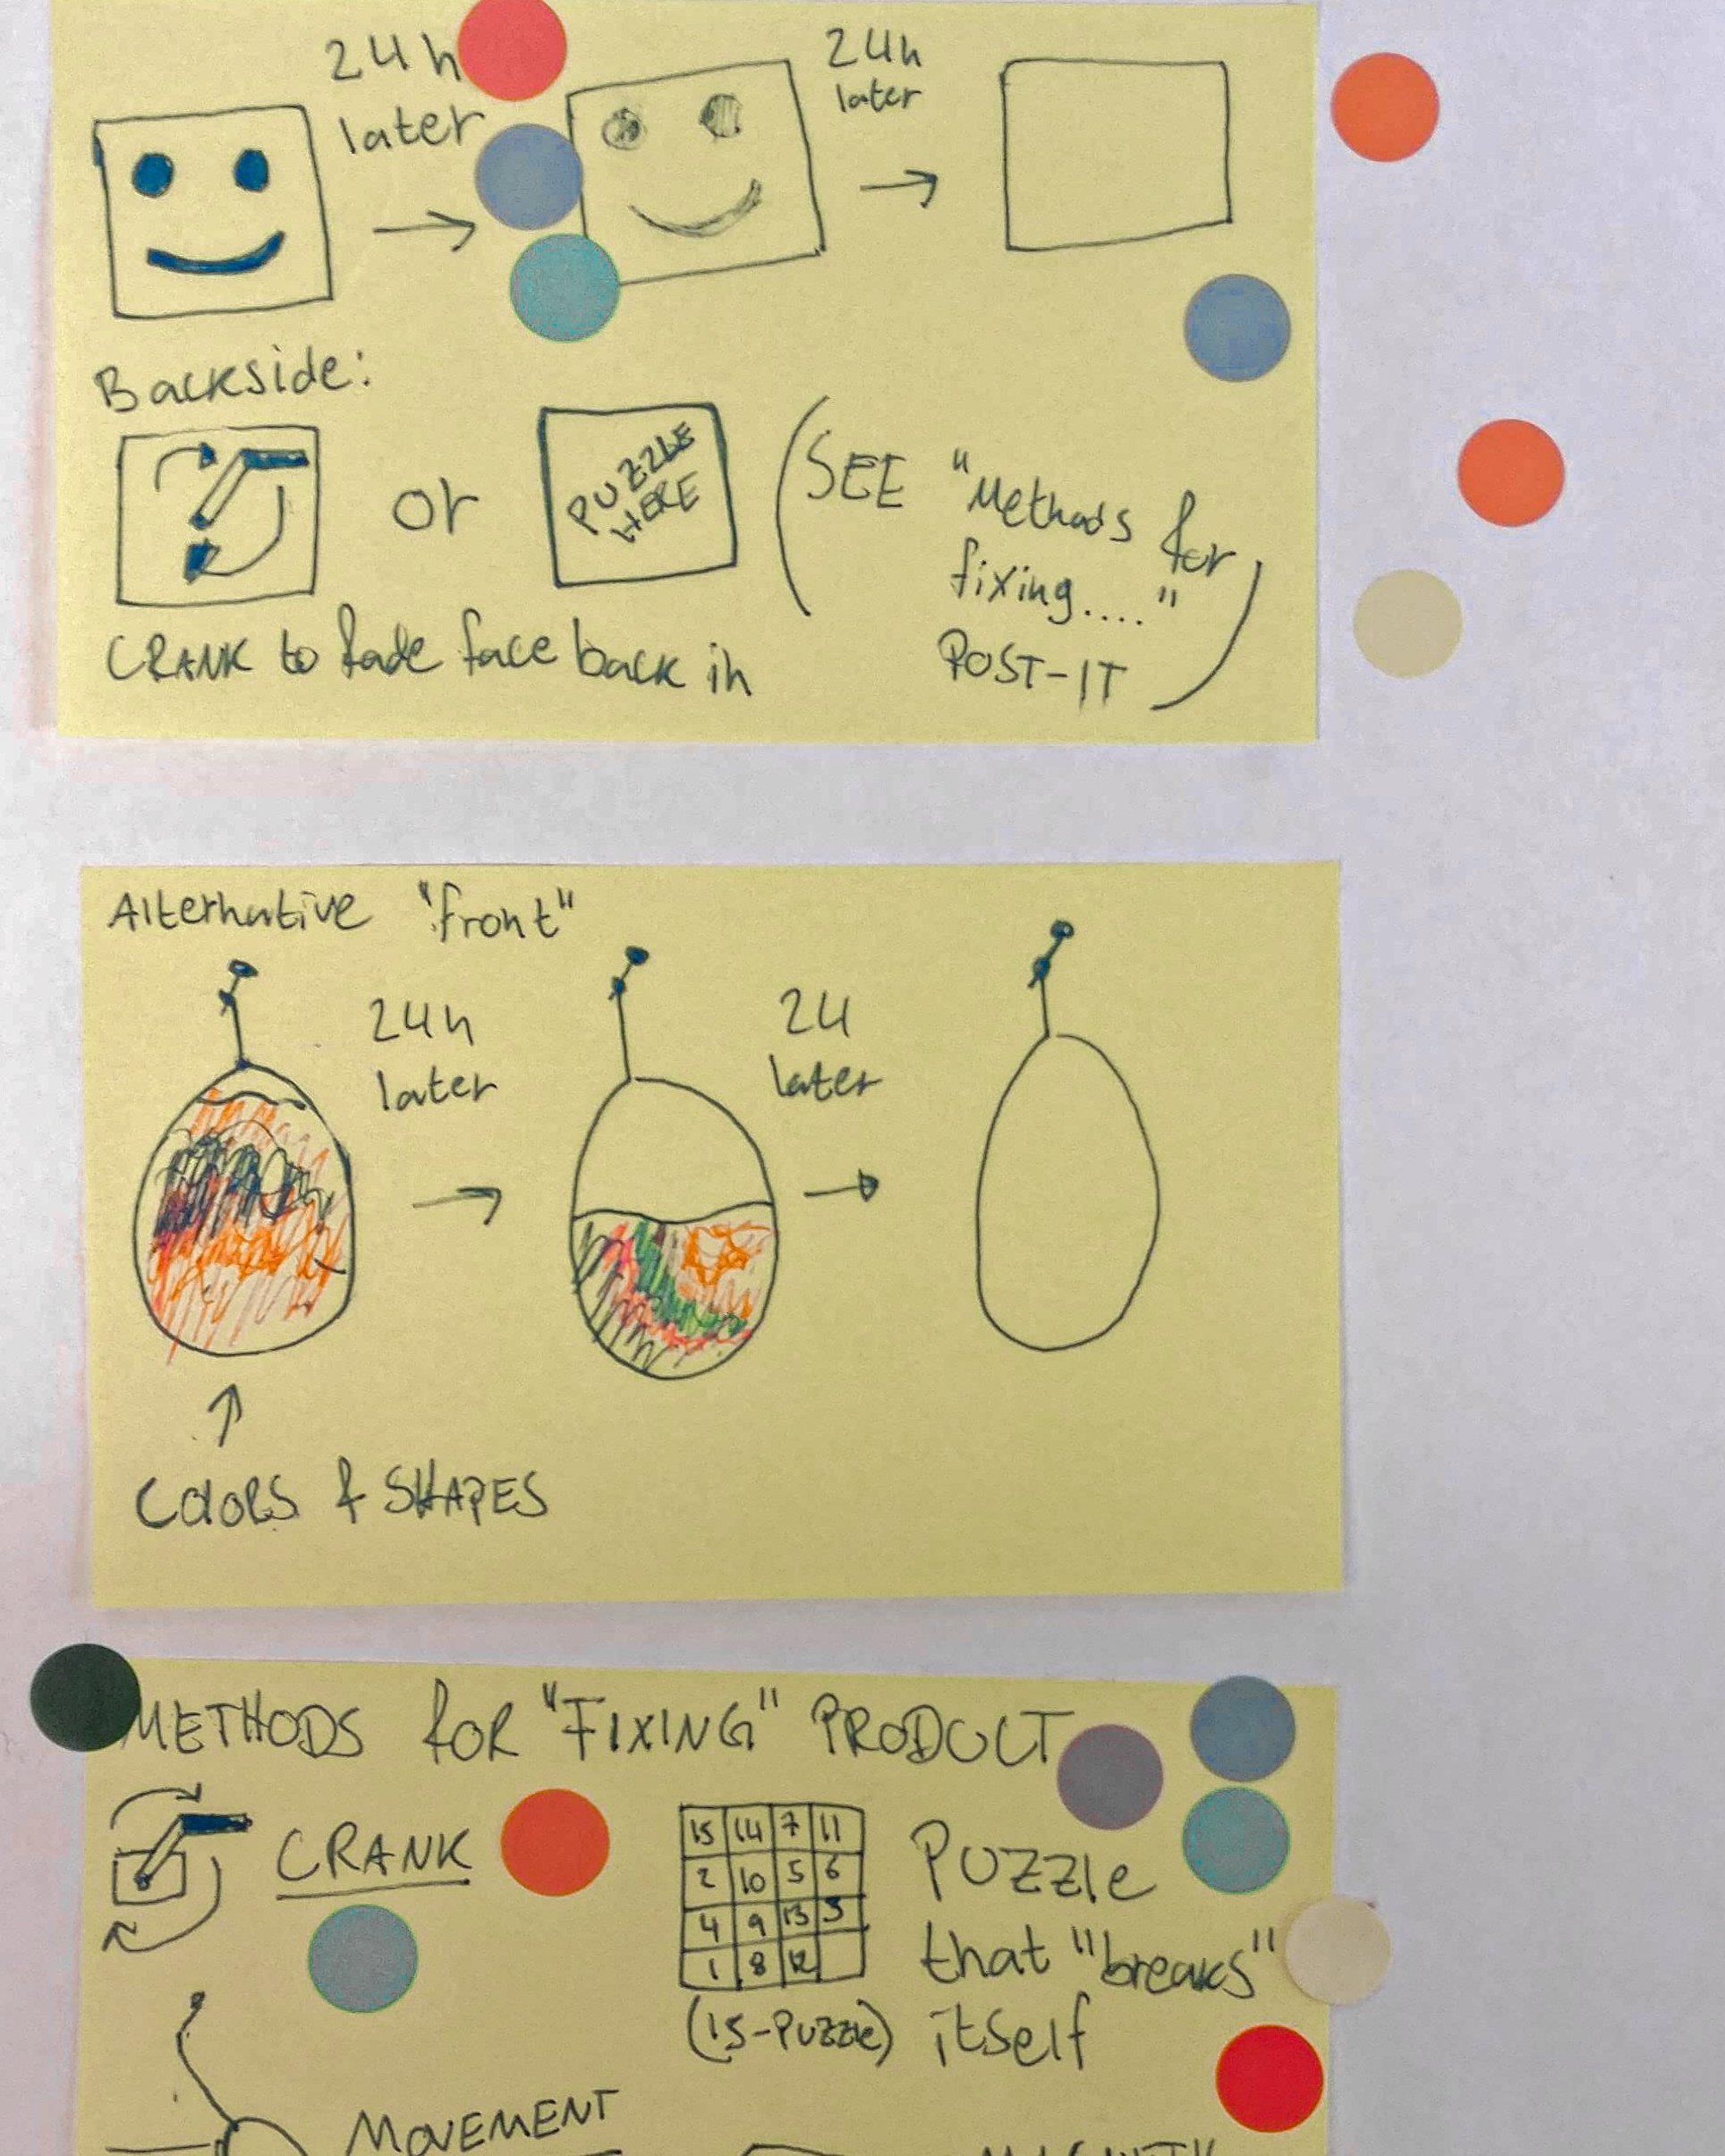 24h
later
24h
later
Backside:
or
PUZZLE
HERE
(SEE "Methods for
fixing...."
POST-IT)
CRANK to fade face back in
Alternative "front"
24h
later
24
later
COLORS & SHAPES
METHODS for "FIXING" PRODUCT
CRANK
15 14 7 11
2 10 5 6
4 9 13 3
1 8 12
(15-PUZZLE)
PUZZLE
that "breaks"
itself
MOVEMENT